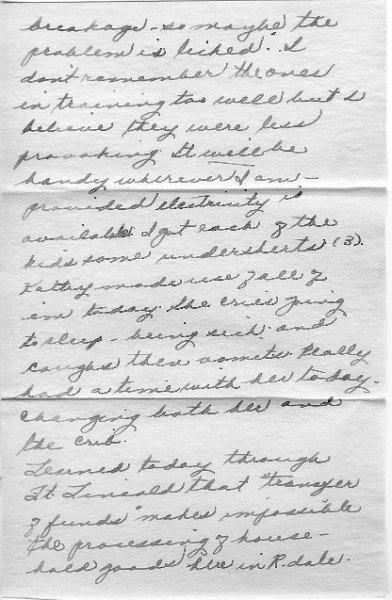 breakage - so maybe the
problem is licked. I
don't remember the ones
in training too well but I
believe they were less
provoking. It will be
handy wherever I am -
provided electricity is
available. I got each of the
kids some undershirts (3).
Kathy made use of all of
em today. She cries going
to sleep - being sick - and
coughs then vomits. Really
had a time with her today -
changing both her and
the crib.
Learned today through
Lt. that "transfer
of funds" makes impossible
the processing of house-
hold goods here in R.dale.